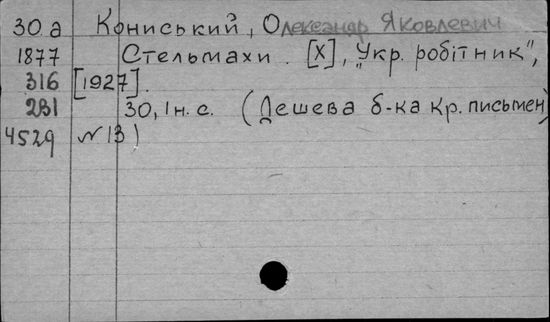 30.а Кониський, Олександр Яковлевич
1877 Стельмахи. [Х], "Укр. робітник",
316 [1927].
231 30, 1 н. с. (Дешева б-ка Кр. письмен
4529 №13)